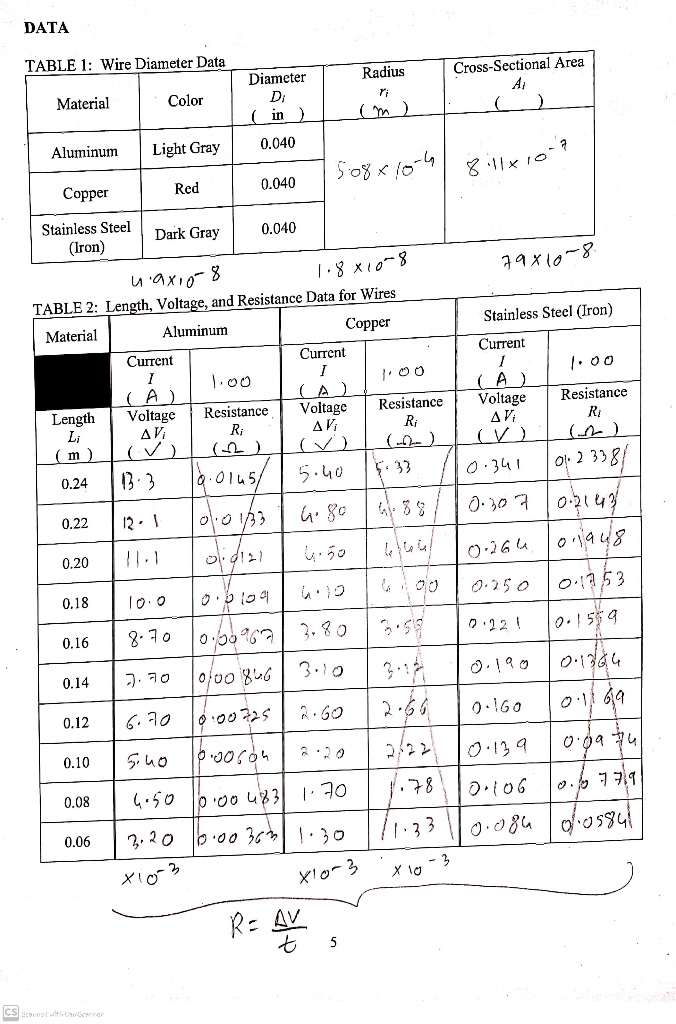 DATA
TABLE 1: Wire Diameter Data
Material Color Diameter Di ( in ) Radius ri ( m ) Cross-Sectional Area Ai ( )
Aluminum Light Gray 0.040
5.08 x 10-4 8.11 x 10-7
Copper Red 0.040
Stainless Steel (Iron) Dark Gray 0.040
4.9x10-8 1.8 x10-8 79x10-8
TABLE 2: Length, Voltage, and Resistance Data for Wires
Material Aluminum Copper Stainless Steel (Iron)
Current I ( A ) 1.00 Current I ( A ) 1.00 Current I ( A ) 1.00
Length Li ( m ) Voltage ΔVi ( V ) Resistance Ri ( Ω ) Voltage ΔVi ( V ) Resistance Ri ( Ω ) Voltage ΔVi ( V ) Resistance Ri ( Ω )
0.24 13.3 0.0145 5.40 5.33 0.341 0.2338
0.22 12.1 0.0133 4.80 4.88 0.307 0.2143
0.20 11.1 0.0121 4.50 4.44 0.264 0.1948
0.18 10.0 0.0109 4.10 4.00 0.250 0.1753
0.16 8.70 0.00967 3.80 3.55 0.221 0.1559
0.14 7.70 0.00846 3.10 3.11 0.190 0.1364
0.12 6.70 0.00725 2.60 2.66 0.160 0.1169
0.10 5.40 0.00604 2.20 2.22 0.139 0.0974
0.08 4.50 0.00483 1.70 1.78 0.106 0.0779
0.06 3.20 0.00363 1.30 1.33 0.084 0.0584
x10-3 x10-3 x10-3
R= ΔV
t
5
CS Scanned with CamScanner